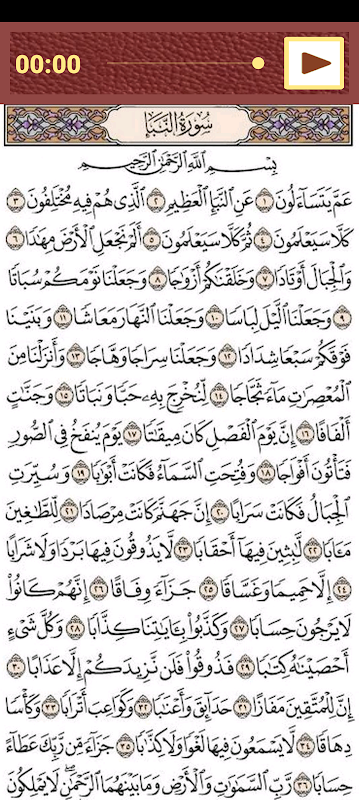 00:00
سُورَةُ النَّبَإِ
بِسْمِ اللَّهِ الرَّحْمَٰنِ الرَّحِيمِ
عَمَّ يَتَسَاءَلُونَ ١ عَنِ النَّبَإِ الْعَظِيمِ ٢ الَّذِي هُمْ فِيهِ مُخْتَلِفُونَ ٣
كَلَّا سَيَعْلَمُونَ ٤ ثُمَّ كَلَّا سَيَعْلَمُونَ ٥ أَلَمْ نَجْعَلِ الْأَرْضَ مِهَٰدًا ٦
وَالْجِبَالَ أَوْتَادًا ٧ وَخَلَقْنَٰكُمْ أَزْوَٰجًا ٨ وَجَعَلْنَا نَوْمَكُمْ سُبَاتًا
٩ وَجَعَلْنَا الَّيْلَ لِبَاسًا ١٠ وَجَعَلْنَا النَّهَارَ مَعَاشًا ١١ وَبَنَيْنَا
فَوْقَكُمْ سَبْعًا شِدَادًا ١٢ وَجَعَلْنَا سِرَاجًا وَهَّاجًا ١٣ وَأَنْزَلْنَا مِنَ
الْمُعْصِرَٰتِ مَاءً ثَجَّاجًا ١٤ لِنُخْرِجَ بِهِ حَبًّا وَنَبَاتًا ١٥ وَجَنَّٰتٍ
أَلْفَافًا ١٦ إِنَّ يَوْمَ الْفَصْلِ كَانَ مِيقَٰتًا ١٧ يَوْمَ يُنْفَخُ فِي الصُّورِ
فَتَأْتُونَ أَفْوَاجًا ١٨ وَفُتِحَتِ السَّمَاءُ فَكَانَتْ أَبْوَٰبًا ١٩ وَسُيِّرَتِ
الْجِبَالُ فَكَانَتْ سَرَابًا ٢٠ إِنَّ جَهَنَّمَ كَانَتْ مِرْصَادًا ٢١ لِلطَّٰغِينَ
مَـَٔابًا ٢٢ لَٰبِثِينَ فِيهَا أَحْقَابًا ٢٣ لَا يَذُوقُونَ فِيهَا بَرْدًا وَلَا شَرَابًا
٢٤ إِلَّا حَمِيمًا وَغَسَّاقًا ٢٥ جَزَاءً وِفَاقًا ٢٦ إِنَّهُمْ كَانُوا
لَا يَرْجُونَ حِسَابًا ٢٧ وَكَذَّبُوا بِـَٔايَٰتِنَا كِذَّابًا ٢٨ وَكُلَّ شَيْءٍ
أَحْصَيْنَٰهُ كِتَٰبًا ٢٩ فَذُوقُوا فَلَنْ نَزِيدَكُمْ إِلَّا عَذَابًا ٣٠
إِنَّ لِلْمُتَّقِينَ مَفَازًا ٣١ حَدَائِقَ وَأَعْنَٰبًا ٣٢ وَكَوَاعِبَ أَتْرَابًا ٣٣ وَكَأْسًا
دِهَاقًا ٣٤ لَا يَسْمَعُونَ فِيهَا لَغْوًا وَلَا كِذَّٰبًا ٣٥ جَزَاءً مِنْ رَبِّكَ عَطَاءً
حِسَابًا ٣٦ رَبِّ السَّمَٰوَٰتِ وَالْأَرْضِ وَمَا بَيْنَهُمَا الرَّحْمَٰنِ ۖ لَا يَمْلِكُونَ